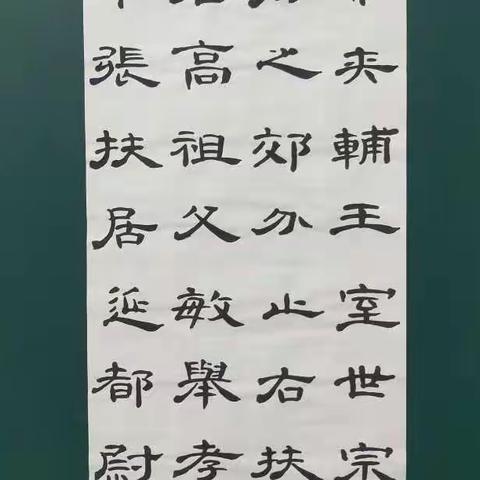 夾輔王室世宗
之郊分止右扶
高祖父敏舉孝
張扶居延都尉